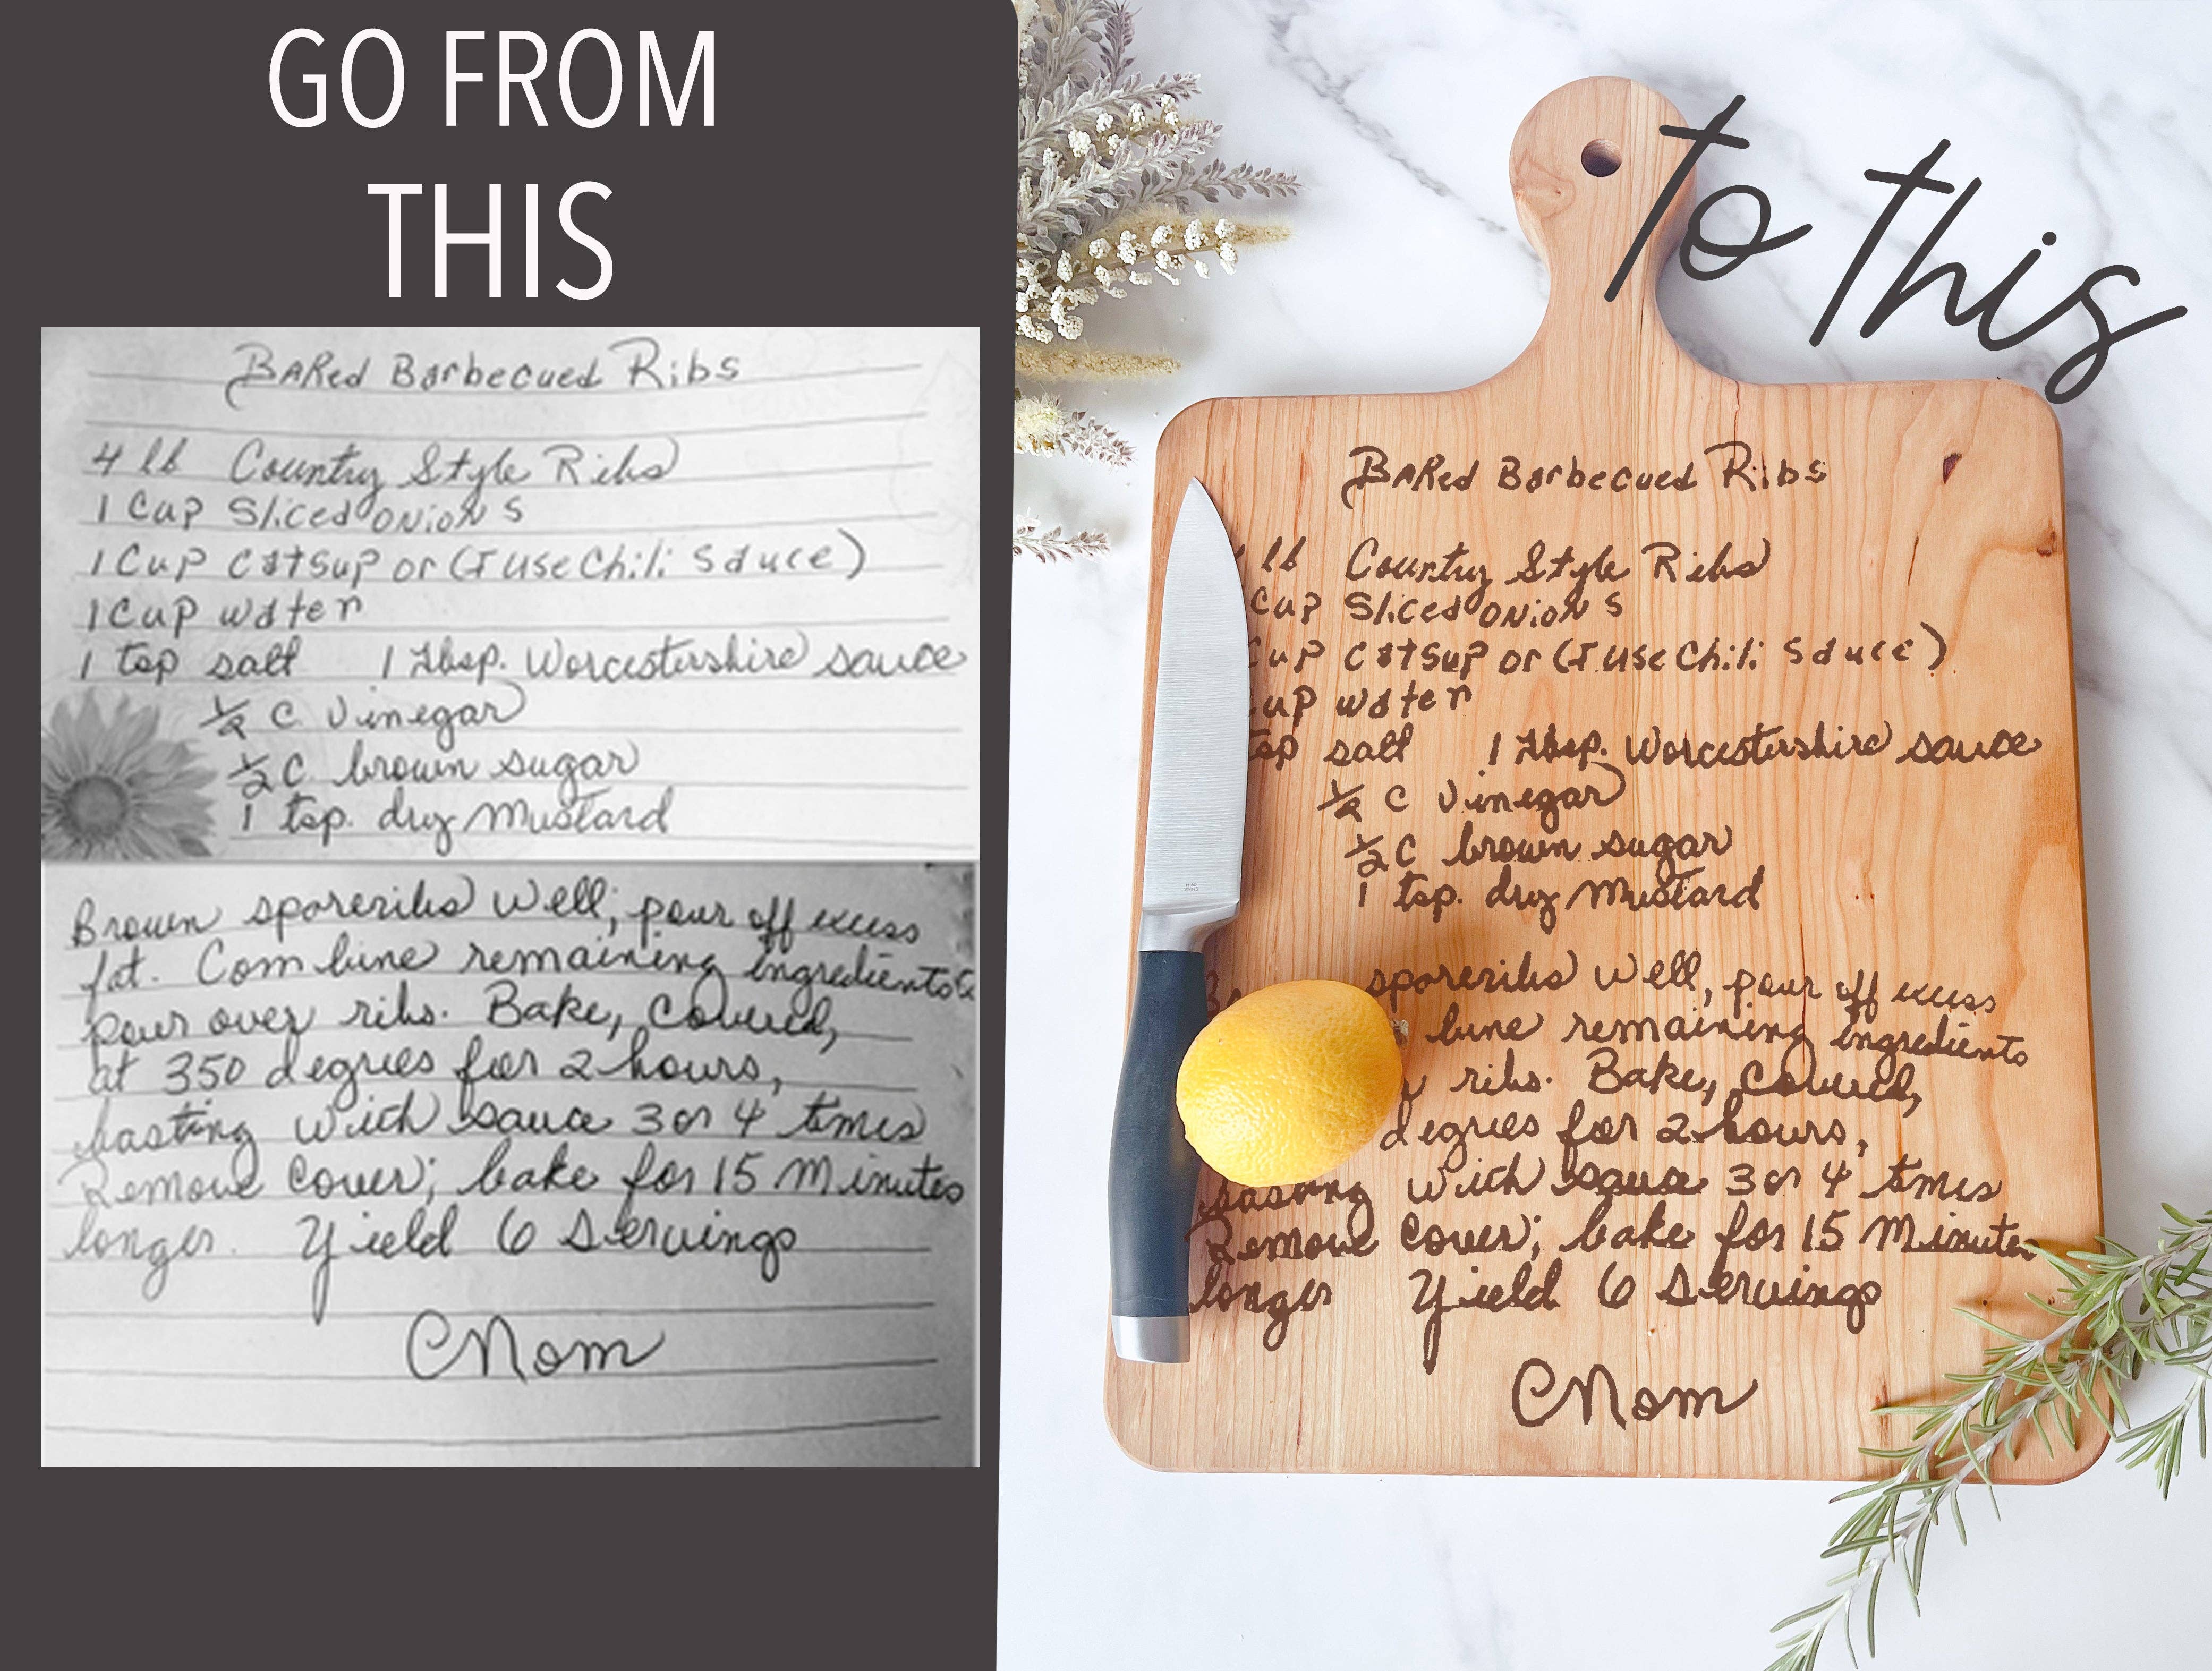 GO FROM
THIS
BARed Barbecued Ribs
4 lb Country Style Ribs
1 Cup Sliced onions
1 Cup catsup or (I use Chili Sauce)
1 Cup water
1 tsp salt 1 Tbsp. Worcestershire sauce
1/2 C Vinegar
1/2 C brown sugar
1 tsp. dry Mustard
Brown spareribs well; pour off excess
fat. Combine remaining ingredients &
pour over ribs. Bake, Covered,
at 350 degrees for 2 hours,
basting with sauce 3 or 4 times
Remove cover; bake for 15 Minutes
longer. Yield 6 Servings
Mom
to this
BARed Barbecued Ribs
lb Country Style Ribs
Cup Sliced onions
Cup catsup or (I use Chili Sauce)
up water
tsp salt 1 Tbsp. Worcestershire sauce
1/2 C Vinegar
1/2 C brown sugar
1 tsp. dry Mustard
spareribs well, pour off excess
bine remaining ingredients
ribs. Bake, Covered,
degrees for 2 hours,
basting with sauce 3 or 4 times
Remove cover; bake for 15 Minutes
longer Yield 6 Servings
Mom